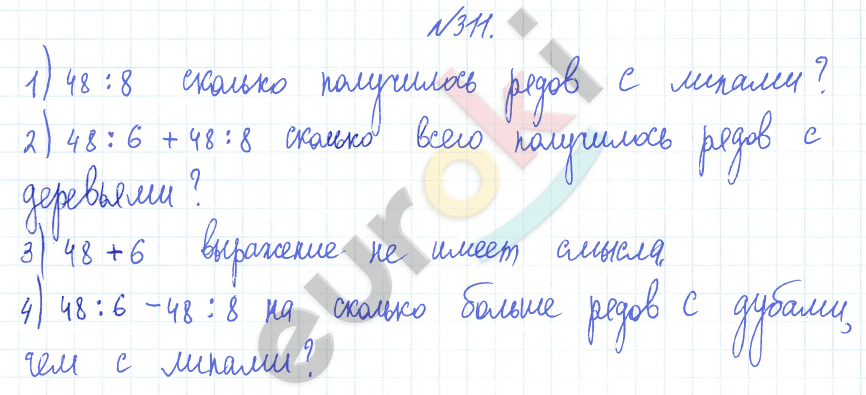 №311.
1) 48 : 8 сколько получилось рядов с липами?
2) 48 : 6 + 48 : 8 сколько всего получилось рядов с
деревьями?
3) 48 + 6 выражение не имеет смысла.
4) 48 : 6 - 48 : 8 на сколько больше рядов с дубами,
чем с липами?
euroki